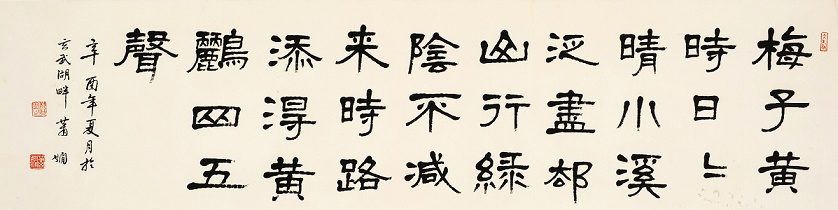 梅子黄
時日〻
晴小溪
泛盡却
山行緑
陰不減
来時路
添淂黄
鸝四五
聲
辛酉年夏月於
玄武湖畔蕭嫻